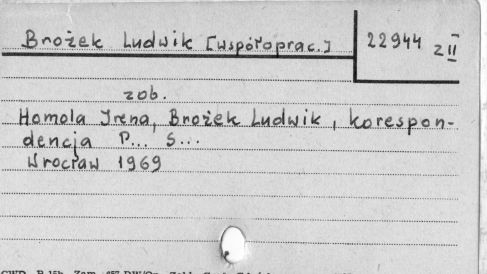 Brożek Ludwik [współoprac.]
22944 z II
zob.
Homola Irena, Brożek Ludwik, korespon-
dencja P... S...
Wrocław 1969